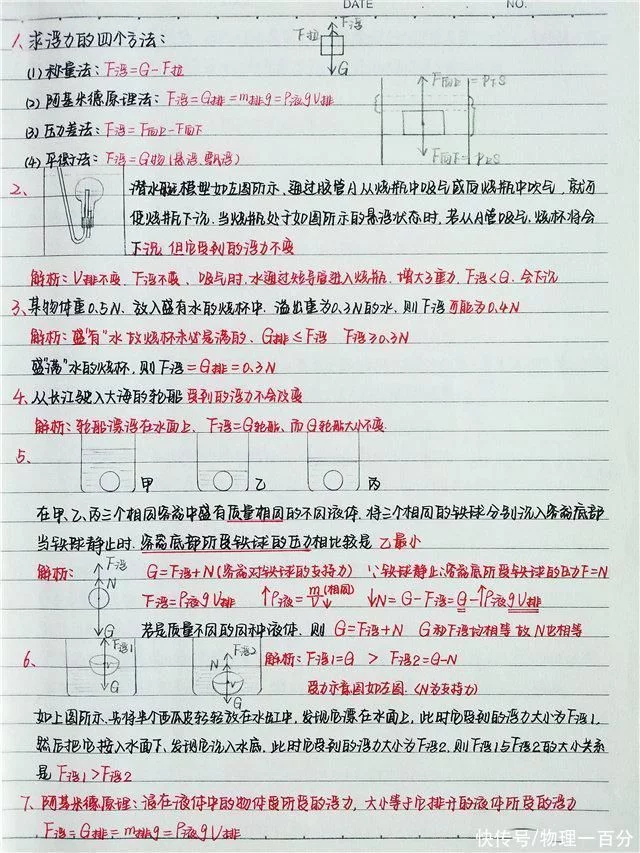 DATE . . NO.
1、求浮力的四个方法:
F拉 F浮 G
(1) 称量法: F浮=G-F拉
(2) 阿基米德原理法: F浮=G排=m排g=ρ液gV排
(3) 压力差法: F浮=F向上-F向下
F向上=P下S
F向下=P上S
(4) 平衡法: F浮=G物(悬浮、漂浮)
2、
潜水艇模型如左图所示、通过胶管A从烧瓶中吸气或向烧瓶中吹气,就可
使烧瓶下沉.当烧瓶处于如图所示的悬浮状态时.若从A管吸气.烧杯将会
下沉 但它受到的浮力不变
解析: V排不变.F浮不变、吸气时.水通过短导管进入烧瓶.增大了重力,F浮<G.会下沉
3、某物体重0.5N.放入盛有水的烧杯中.溢出重为0.3N的水.则F浮可能为0.4N
解析:盛"有"水 故烧杯未必是满的、G排≤F浮 F浮≥0.3N
盛"满"水的烧杯,则F浮=G排=0.3N
4、从长江驶入大海的轮船受到的浮力不会改变
解析:轮船漂浮在水面上、F浮=G轮船、而G轮船大小不变
5、
甲 乙 丙
在甲、乙、丙三个相同容器中盛有质量相同的不同液体.将三个相同的铁球分别沉入容器底部
当铁球静止时.容器底部所受铁球的压力相比较是 乙最小
解析: F浮 N G
G=F浮+N(容器对铁球的支持力) ∵铁球静止∴容器底所受铁球的压力F=N
F浮=ρ液gV排 ↑ρ液=m(相同)/V↓ ↓N=G-F浮=G-↑ρ液gV排
若是质量不同的同种液体.则 G=F浮+N G和F浮均相等 故N也相等
6、
F浮1 G
N F浮2 G
解析: F浮1=G > F浮2=G-N
受力示意图如左图.(N为支持力)
如上图所示.先将半个西瓜皮轻轻放在水缸中,发现它漂在水面上,此时它受到的浮力大小为F浮1.
然后把它按入水面下、发现它沉入水底.此时它受到的浮力大小为F浮2.则F浮1与F浮2的大小关系
是 F浮1>F浮2
7、阿基米德原理:浸在液体中的物体受所受的浮力,大小等于它排开的液体所受的浮力
F浮=G排=m排g=ρ液gV排
快传号/物理一百分